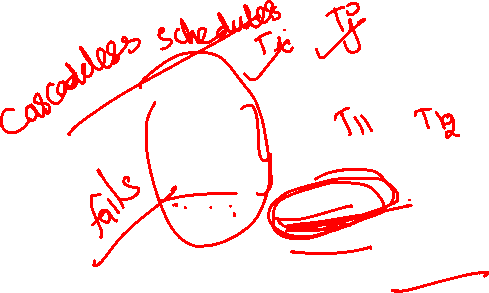 Cascadeless schedules
Ti Tj
T11 T12
fails